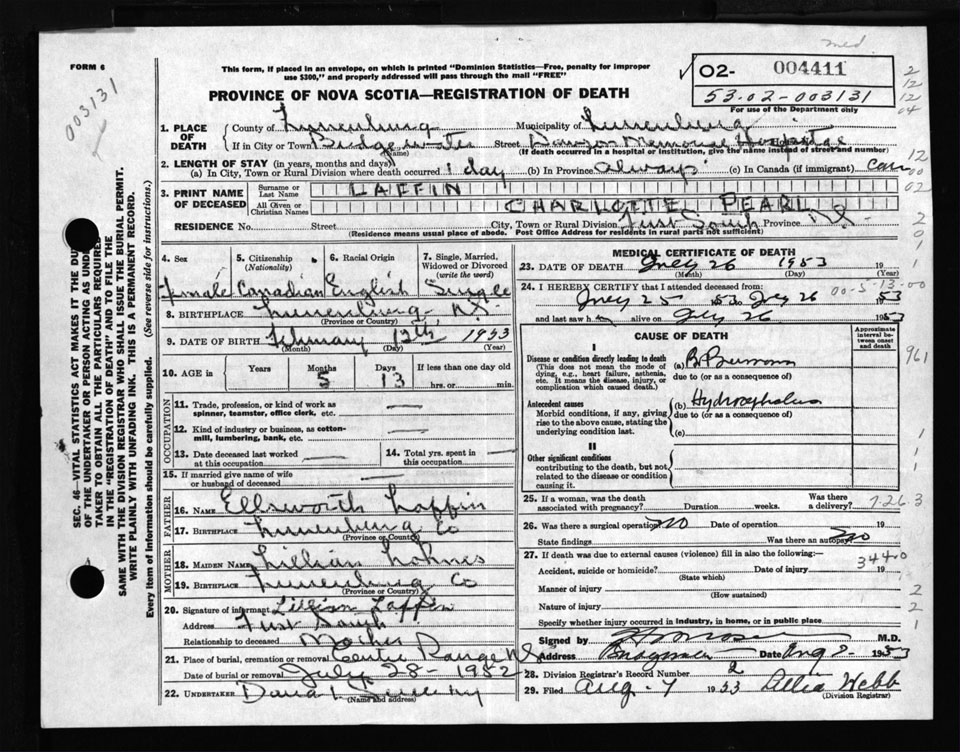 med.
FORM 6
003131
This form, if placed in an envelope, on which is printed "Dominion Statistics—Free, penalty for improper
use $300," and properly addressed will pass through the mail "FREE"
PROVINCE OF NOVA SCOTIA—REGISTRATION OF DEATH
02- 004411
53-02-003131
For use of the Department only
2
12
12
04
1. PLACE OF DEATH
County of Lunenburg Municipality of Lunenburg
If in City or Town Bridgewater (Name) Street Dawson Memorial Hospital
(If death occurred in a hospital or institution, give the name instead of street and number)
2. LENGTH OF STAY (in years, months and days)
(a) In City, Town or Rural Division where death occurred 1 day (b) In Province always (c) In Canada (if immigrant)
12
00
02
3. PRINT NAME OF DECEASED
Surname or Last Name LAFFIN
All Given or Christian Names CHARLOTTE PEARL
RESIDENCE No. Street City, Town or Rural Division First South Province N.S.
(Residence means usual place of abode. Post Office Address for residents in rural parts not sufficient)
2
0
1
SEC. 46—VITAL STATISTICS ACT MAKES IT THE DUTY
OF THE UNDERTAKER OR PERSON ACTING AS UNDER-
TAKER TO OBTAIN ALL THE PARTICULARS REQUIRED
IN THE "REGISTRATION OF DEATH" AND TO FILE THE
SAME WITH THE DIVISION REGISTRAR WHO SHALL ISSUE THE BURIAL PERMIT.
WRITE PLAINLY WITH UNFADING INK. THIS IS A PERMANENT RECORD.
Every item of information should be carefully supplied. (See reverse side for instructions.)
4. Sex Female
5. Citizenship (Nationality) Canadian
6. Racial Origin English
7. Single, Married, Widowed or Divorced (write the word) Single
8. BIRTHPLACE Lunenburg N.S.
(Province or Country)
9. DATE OF BIRTH February 13th 1953
(Month) (Day) (Year)
10. AGE in Years Months 5 Days 13 If less than one day old
hrs. or min.
OCCUPATION
11. Trade, profession, or kind of work as
spinner, teamster, office clerk, etc. —
12. Kind of industry or business, as cotton-
mill, lumbering, bank, etc. —
13. Date deceased last worked
at this occupation —
14. Total yrs. spent in
this occupation —
15. If married give name of wife
or husband of deceased
FATHER
16. NAME Ellsworth Laffin
17. BIRTHPLACE Lunenburg Co
(Province or Country)
MOTHER
18. MAIDEN NAME Lillian Lohnes
19. BIRTHPLACE Lunenburg Co
(Province or Country)
20. Signature of informant Lillian Laffin
Address First South
Relationship to deceased Mother
21. Place of burial, cremation or removal Centre Range N.S.
Date of burial or removal July 28 - 1952
22. UNDERTAKER
(Name and address)
MEDICAL CERTIFICATE OF DEATH
23. DATE OF DEATH July 26 1953 19
(Month) (Day) (Year)
24. I HEREBY CERTIFY that I attended deceased from:
00-5-13-00
July 25 1953 to July 26 1953
and last saw h er alive on July 26 1953
CAUSE OF DEATH
Approximate interval between onset and death
I
Disease or condition directly leading to death
(This does not mean the mode of
dying, e.g., heart failure, asthenia,
etc. It means the disease, injury, or
complication which caused death.)
(a) B. Pneumonia
due to (or as a consequence of)
961
Antecedent causes
Morbid conditions, if any, giving
rise to the above cause, stating the
underlying condition last.
(b) Hydrocephalus
due to (or as a consequence of)
(c)
II
Other significant conditions
contributing to the death, but not
related to the disease or condition
causing it.
1
1
1
25. If a woman, was the death
associated with pregnancy? Duration weeks. Was there
a delivery?
7-26-3
26. Was there a surgical operation? no Date of operation 19
State findings Was there an autopsy? no
27. If death was due to external causes (violence) fill in also the following:—
344.0
Accident, suicide or homicide? Date of injury 19
(State which)
Manner of injury
(How sustained)
2
Nature of injury
2
Specify whether injury occurred in industry, in home, or in public place
1
Signed by M.D.
Address Bridgewater Date Aug 2- 1953
28. Division Registrar's Record Number 2
29. Filed Aug. 7 1953 Allia Webb
(Division Registrar)